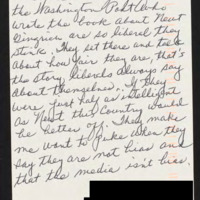 the Washington Post who
write the book about Newt
Gingrich are so liberal they
stink. They sit there and talk
about how fair they are, that's
the story, liberals always say
about themselves. If they
were just half as intelligent
as Newt this Country would
be better off. They make
me want to puke when they
say they are not bias and
that the media isn't bias.